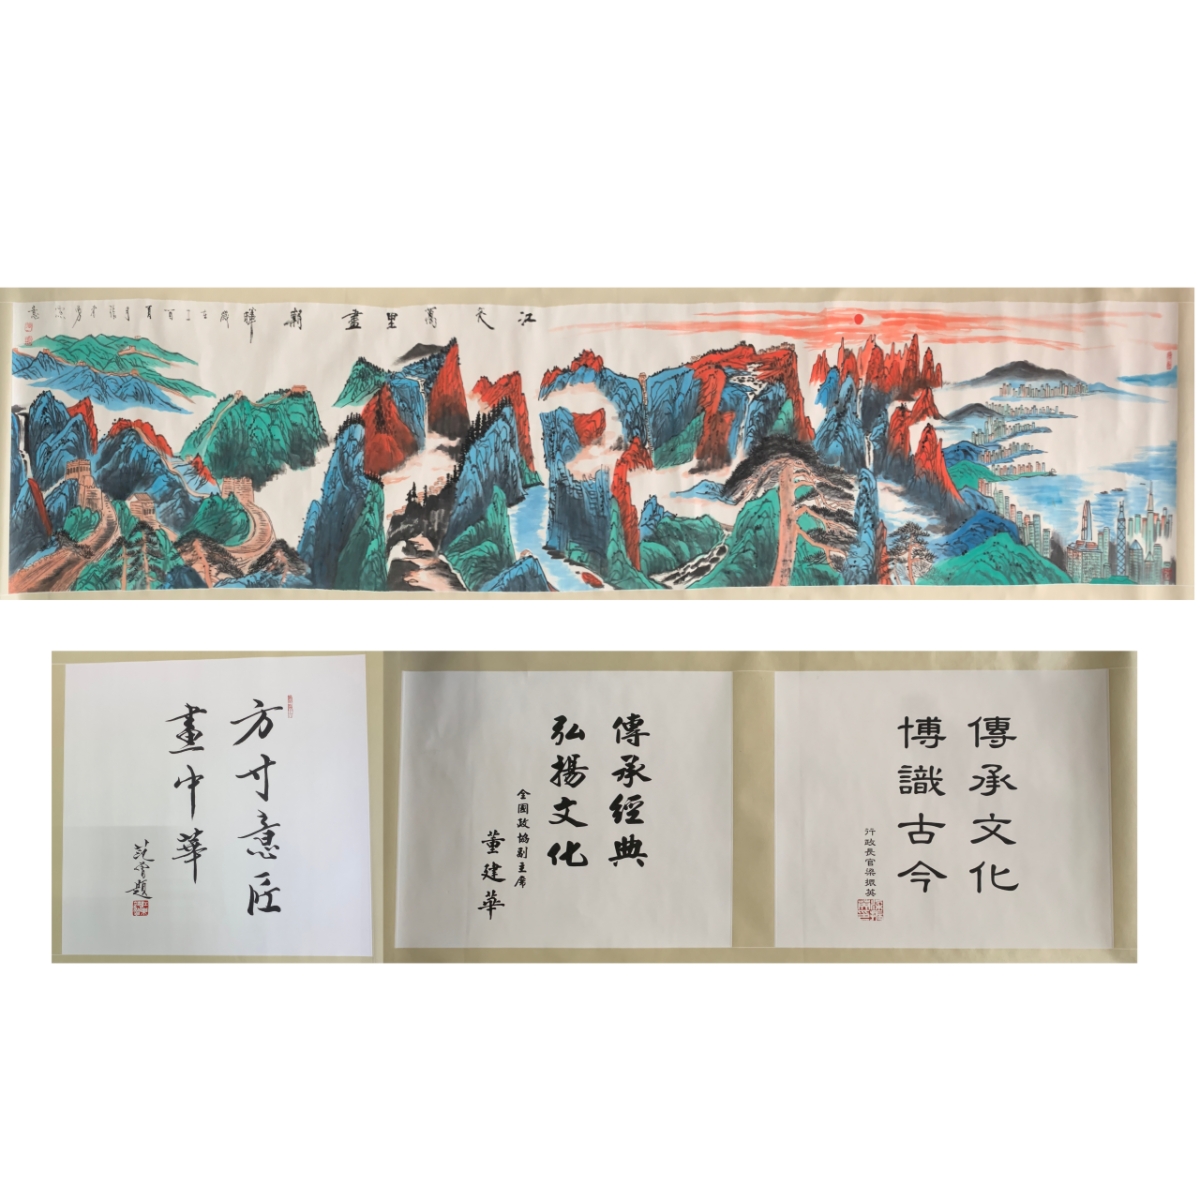 江天萬里盡朝暉
傳承文化
博識古今
行政長官梁振英
傳承經典
弘揚文化
全國政協副主席
董建華
方寸意匠
畫中華
范曾題